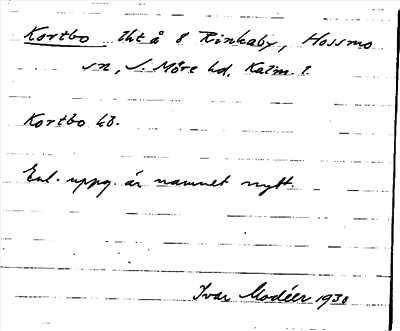 Kortbo lht å 8 Rinkaby, Hossmo
sn, S. Möre hd, Kalm. l.
Kortbo kö.
Enl. uppg. är namnet nytt.
Ivar Modéer 1930